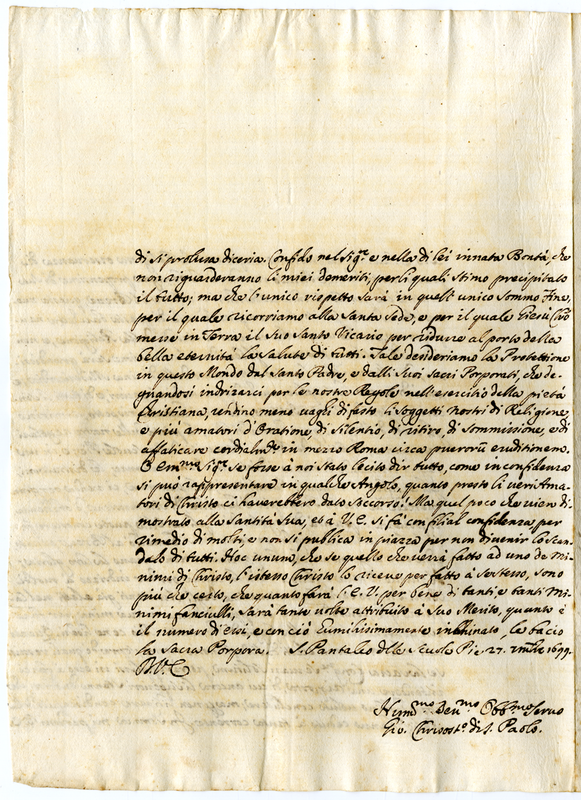 di si prolusa diceria. Confido nel Sig.re e nella di lei innata Bontà, che
non riguarderanno li miei demeriti, per li quali stimo precipitato
il tutto; ma che l'unico rispetto sarà in quell'unico sommo fine,
per il quale ricorriamo alla Santa Sede, e per il quale Giesù Chro
messe in Terra il Suo Santo Vicario per ridurre al porto della
bella eternità la salute di tutti. Tale desideriamo la Protettione
in questo Mondo dal Santo Padre, e dalli Suoi Sacri Porporati, che de-
gnandosi indrizarci per le nostre Regole nell'esercitio della pietà
Christiana, rendino meno vaghi di fasto li Soggetti nostri di Religione,
e più amatori d'Oratione, di Silentio, di ritiro, di Sommissione, e di
affaticare cordialmte in mezzo Roma circa puerorũ eruditionem.
O Em.mo Sig.re se forse à noi stato lecito dir tutto, come in confidenza
si può rappresentare in qualche Angolo, quanto presto li veri Ama-
tori di Christo ci haverebbero dato soccorso! Ma quel poco che vien di-
mostrato alla Santità Sua, et à V.E. si fà con filial confidenza, per
rimedio di molti, e non si publica in piazza per non divenir lo scan-
dalo di tutti. Hoc unum, che se quello che verrà fatto ad uno de Mi-
nimi di Christo, l'istesso Christo lo riceve per fatto à Se stesso, sono
più che certo, che quanto farà l'E.V. per bene di tanti e tanti Mi-
nimi fanciulli, sarà tante volte attribuito à Suo Merito, quanto è
il numero di essi, e con ciò humilissimamente inchinato, le bacio
la Sacra Porpora. S. Pantaleo delle Scuole Pie 27. 1699.
D. V. E.
Hum.mo Dev.mo Obb.mo Servo
Gio. Chrisost.o di S. Paolo.